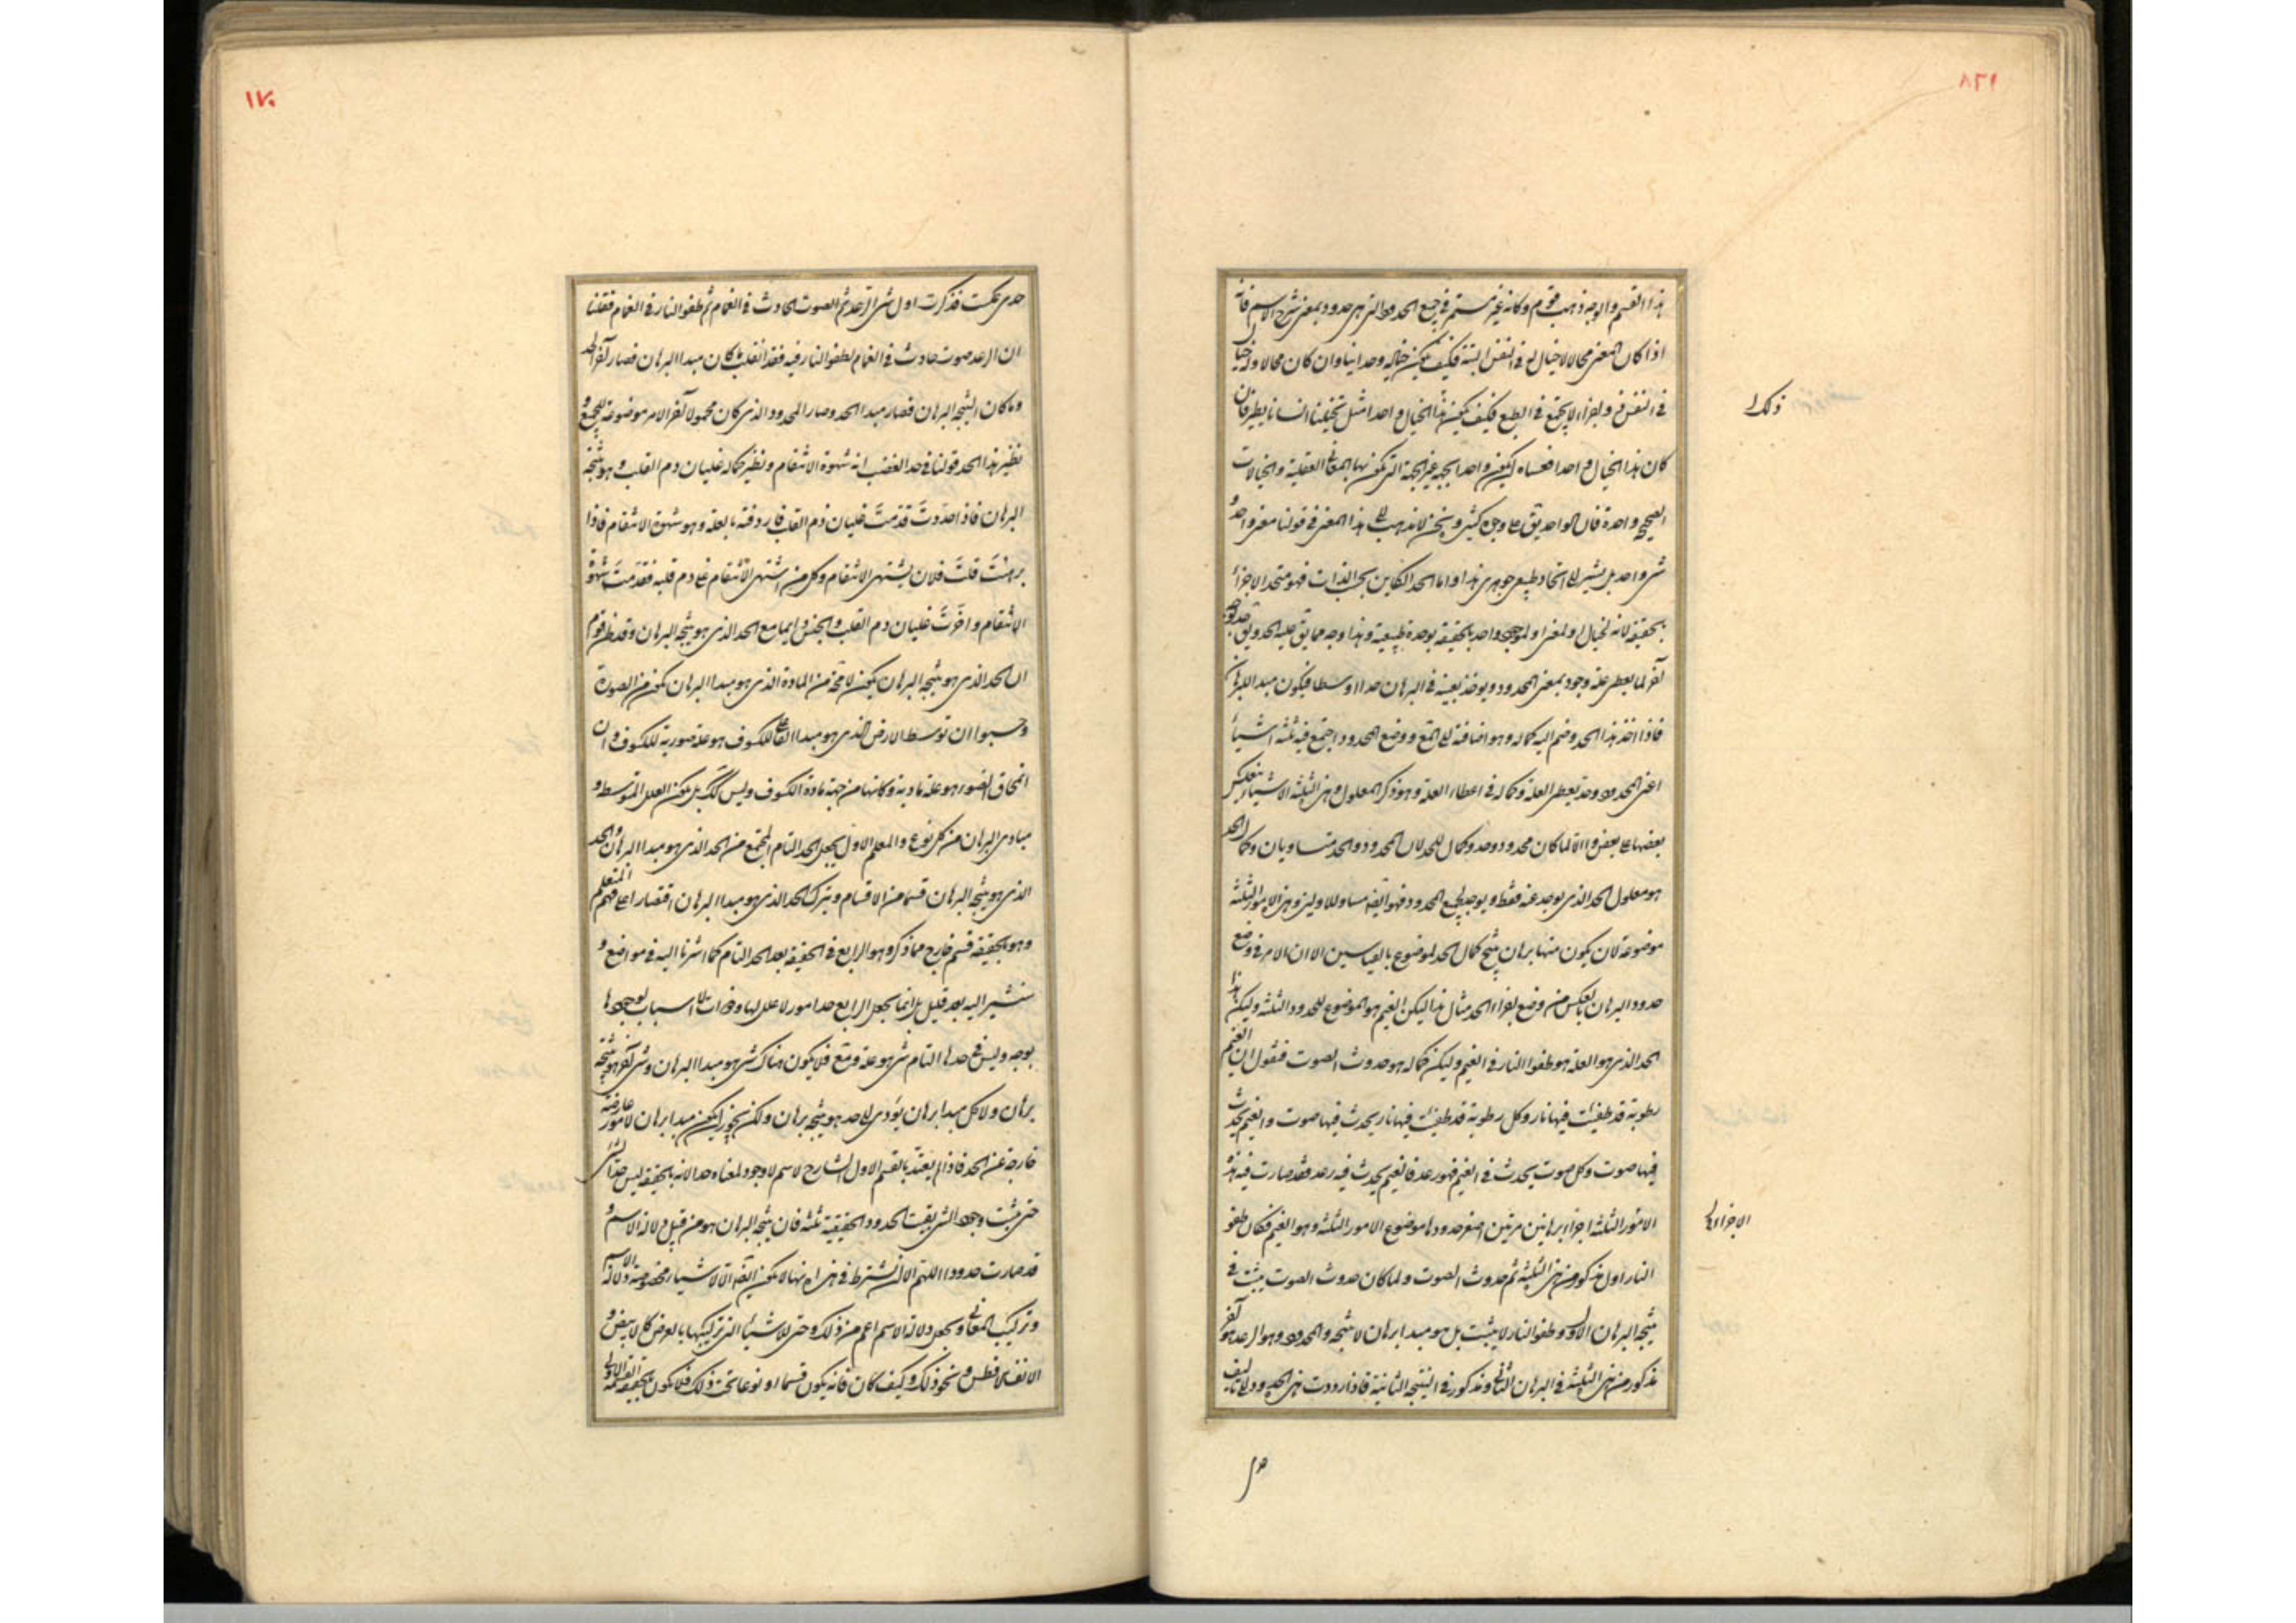 هذا القسم والوجه ذهب قوم وكانه غير مستمر في جميع الحدود التي هي حدود بمعنى شرح الاسم فانه
اذا كان المعنى محالا لا خيال له في النفس البتة فكيف يكون خياله وحدانيا وان كان محالا وله خيال
في النفس ولاجزائه لا يجتمع في الطبع فكيف يكون هذا الخيال واحدا مثل تخيلنا انسانا يطير فان
كان هذا الخيال واحدا فعساه ان يكون واحدا بجهة غير الجهة التي تكون بها المعاني العقلية والخيالات
الصحيحة واحدة فان الواحد يق على وجوه كثيرة ونحن لا نذهب الى هذا المعنى في قولنا معنى واحد
شي واحد بل نشير الى اتحاد طبيعي جوهري هذا واما الحد الكاين بحسب الذات فهو متحد الاجزاء
بالحقيقة لانه لخيال او لمعنى او لموجود واحد بالحقيقة بوحدة طبيعية وهذا وجه مما يق عليه الحد ويق حد بوجه
آخر لما يعطي علة وجود بمعنى المحدود ويوخذ بعينه في البرهان حدا اوسطا فيكون مبدا البرهان
فاذا اخذ هذا الحد وضم اليه كماله وهو اضافته الى المع ووضع المحدود اجتمع فيه ثلثة اشياء
اعني المحدود وحد يعطي العلة وكماله في اعطاء العلة وهو ذكر المعلول وهذه الثلثة الاشياء ينعكس
بعضها على بعض والا لما كان محدود وحد وكمال للحد لان المحدود والحد متساويان وكمال الحد
هو معلول الحد الذي يوجد عنه فقط ويوجد لجميع المحدود فهو ايضا مساو للاولين وهذه الامور الثلثة
موضوعة لان يكون منها برهان ينتج كمال الحد لموضوع بالقياسين الا ان الامر في وضع
حدود البرهان بالعكس من وضع اجزاء الحد مثال هذا ليكن الغيم هو الموضوع للحدود الثلثة وليكن هذا
الحد الذي هو العلة هو طفوا النار في الغيم وليكن كماله هو حدوث الصوت فنقول ان الغيم
رطوبة قد طفئت فيها نار وكل رطوبة قد طفئت فيها نار يحدث فيها صوت والغيم يحدث
فيها صوت وكل صوت يحدث في الغيم فهو رعد فالغيم يحدث فيه رعد فقد صارت فيه هذه
الامور الثلثة اجزاء برهانين مرتبين اصغر حدودها موضوع الامور الثلثة وهو الغيم فكان طفو
النار اول مذكور من هذه الثلثة ثم حدوث الصوت ولما كان حدوث الصوت يثبت في
نتيجة البرهان الاول وطفو النار لا يثبت بل هو مبدا برهان لا نتيجة والمحدود وهو الرعد هو آخر
مذكور من هذه الثلثة في البرهان الثاني ومذكور في النتيجة الثانية فاذا اردت هذه الحدود الى تاليف
ذلك
الاجزاء
حدي
١٧٠
حدي عكست فذكرت اول شي الرعد ثم الصوت الحادث في الغمام ثم طفو النار في الغمام فقلنا
ان الرعد صوت حادث في الغمام لطفو النار فيه فقد انقلب ما كان مبدا البرهان فصار آخر الحد
وما كان نتيجة البرهان فصار مبدا الحد وصار المحدود الذي كان محمولا آخر الامر موضوعه للجميع و
نظير هذا الحد قولنا في حد الغضب انه شهوة الانتقام ونظير كماله غليان دم القلب وهو نتيجة
البرهان فاذا حددت قدمت غليان دم القلب فاردفته بالعلة وهو شهوة الانتقام فاذا
برهنت قلت فلان يشتهي الانتقام وكل من اشتهى الانتقام غلى دم قلبه فقدمت شهوة
الانتقام واخرت غليان دم القلب والجنس دايما مع الحد الذي هو نتيجة البرهان وقد ظن قوم
ان الحد الذي هو نتيجة البرهان يكون لا محة من المادة الذي هو مبدا البرهان يكون من الصورة
وحسبوا ان توسط الارض الذي هو مبدا الفاعلي للكسوف هو علة صورية للكسوف وان
انمحاق الضوء هو علة مادية وكانها من جهة مادة الكسوف وليس كك بل يكون العلل المتوسطة و
مبادي البرهان من كل نوع والمعلم الاول يجعل الحد التام المجتمع من الحد الذي هو مبدا البرهان والحد
الذي هو نتيجة البرهان قسما من الاقسام ويترك الحد الذي هو مبدا البرهان اقتصارا على فهم المتعلم
وهو بالحقيقة قسم خارج مما ذكر وهو الرابع في الحقيقة بعد الحد التام كما اشرنا اليه في مواضع و
سنشير اليه بعد قليل بل انما يجعل الرابع حد امور لا علل لها وذوات بلا اسباب لوجودها
بوجه وليس في حدها التام شي هو علة ومع فلا يكون هناك شي هو مبدا البرهان وشي آخر هو نتيجة
برهان ولا كل مبدا برهان يودي الى حد هو نتيجة برهان ولكن يجوز ان يكون مبدا برهان لامور عارضة
خارجة عن الحد فاذا لم يعتد بالقسم الاول الشارح لاسم لا وجود لمعناه حدا لانه بالحقيقة ليس حدا لشي
حتى يثبت وجود الشي بقيت الحدود الحقيقية ثلثة فان نتيجة البرهان هو من قبيل دلالة الاسم و
قد صارت حدودا اللهم الا ان يشترط في هذه انها لا يكون ايضا الا لاشياء مخصوصة ودلالة الاسم
وتركيب المعاني ويجعل دلالة الاسم اعم من ذلك وحتى للاشياء التي تركيبها بالعرض كالابيض و
الانف الافطس ونحو ذلك وكيف كان فانه يكون قسما او نوعا تحت ذلك فلا يكون بالحقيقة القسمة الاولى